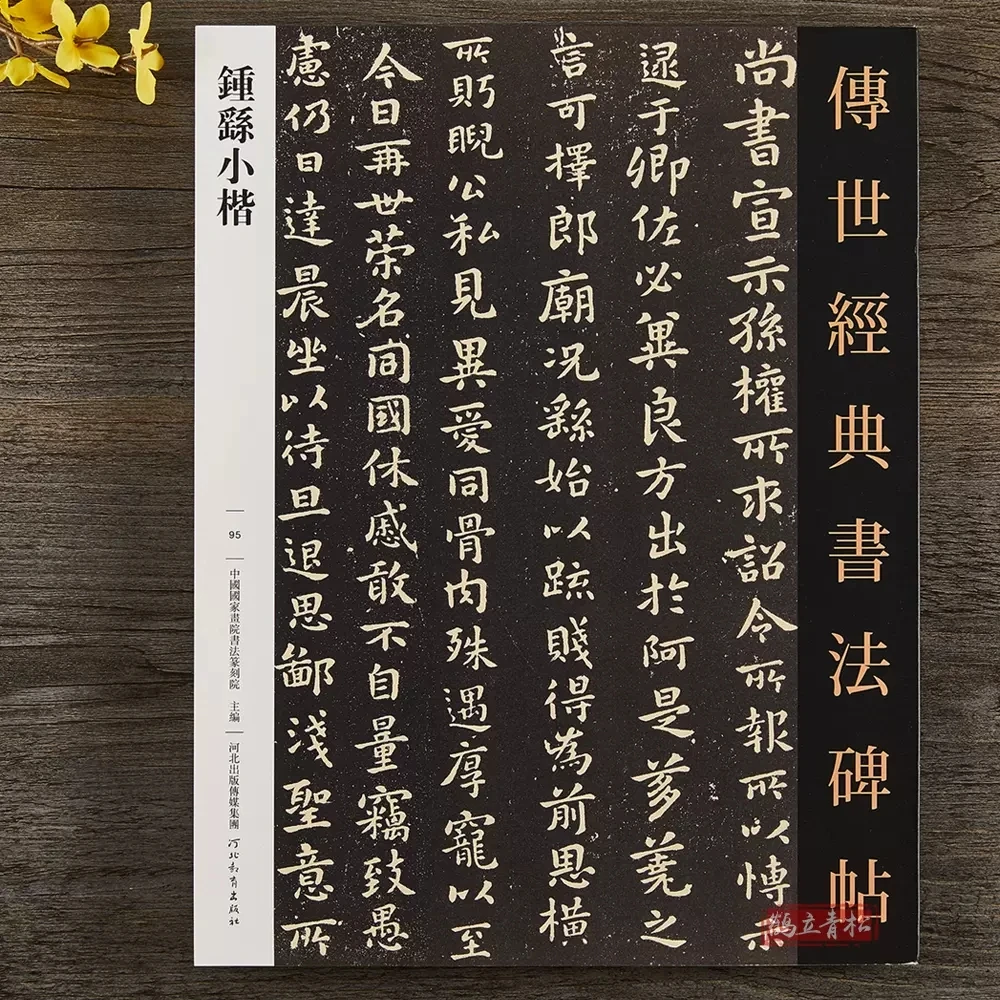 傳世經典書法碑帖
尚書宣示孫權所求詔令所報所以博示
逮于卿佐必冀良方出於阿是芻蕘之
言可擇郎廟況繇始以疏賤得為前恩橫
所眄睨公私見異愛同骨肉殊遇厚寵以至
今日再世榮名同國休慼敢不自量竊致愚
慮仍日達晨坐以待旦退思鄙淺聖意所
鍾繇小楷
95
中國國家畫院書法篆刻院 主編
河北出版傳媒集團
河北教育出版社
鹤立青松